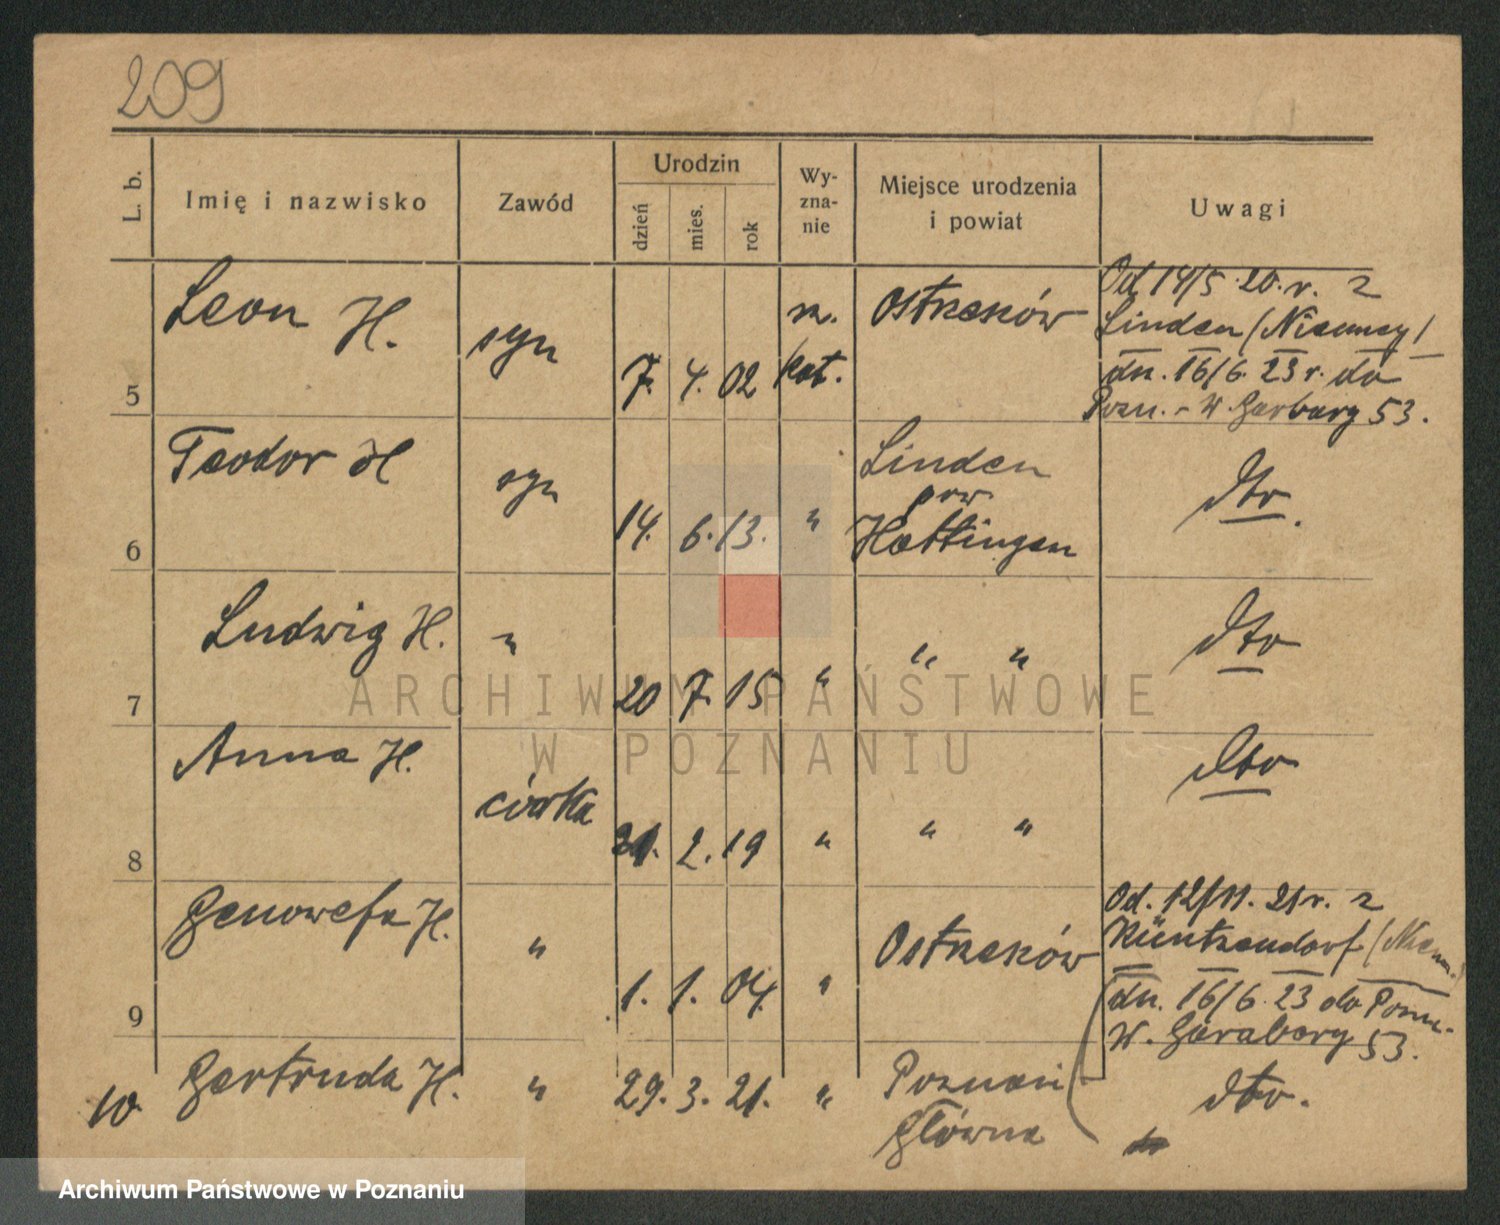 209
L. b.
Imię i nazwisko
Zawód
Urodzin
dzień
mies.
rok
Wy-
zna-
nie
Miejsce urodzenia
i powiat
Uwagi
5
Leon H.
syn
7. 4. 02
rz.
kat.
Ostrzeszów
Od 14/5 20. r. z
Linden (Niemcy)
dn. 16/6. 23 r. do
Pozn. - W. Garbary 53.
6
Teodor H
syn
14. 6. 13.
"
Linden
pow.
Hattingen
dto.
7
Ludwig H.
"
20 7. 15
"
" "
dto
8
Anna H.
córka
21. 2. 19
"
" "
dto
9
Genowefa H.
"
1. 1. 04.
"
Ostrzeszów
Od. 12/11. 21 r. z
Küntzendorf (Niem.)
dn. 16/6. 23 do Pozn.
W. Garabary 53.
10
Gertruda H.
"
29. 3. 21.
"
Poznań
Główna
dto.
ARCHIWUM PAŃSTWOWE
W POZNANIU
Archiwum Państwowe w Poznaniu